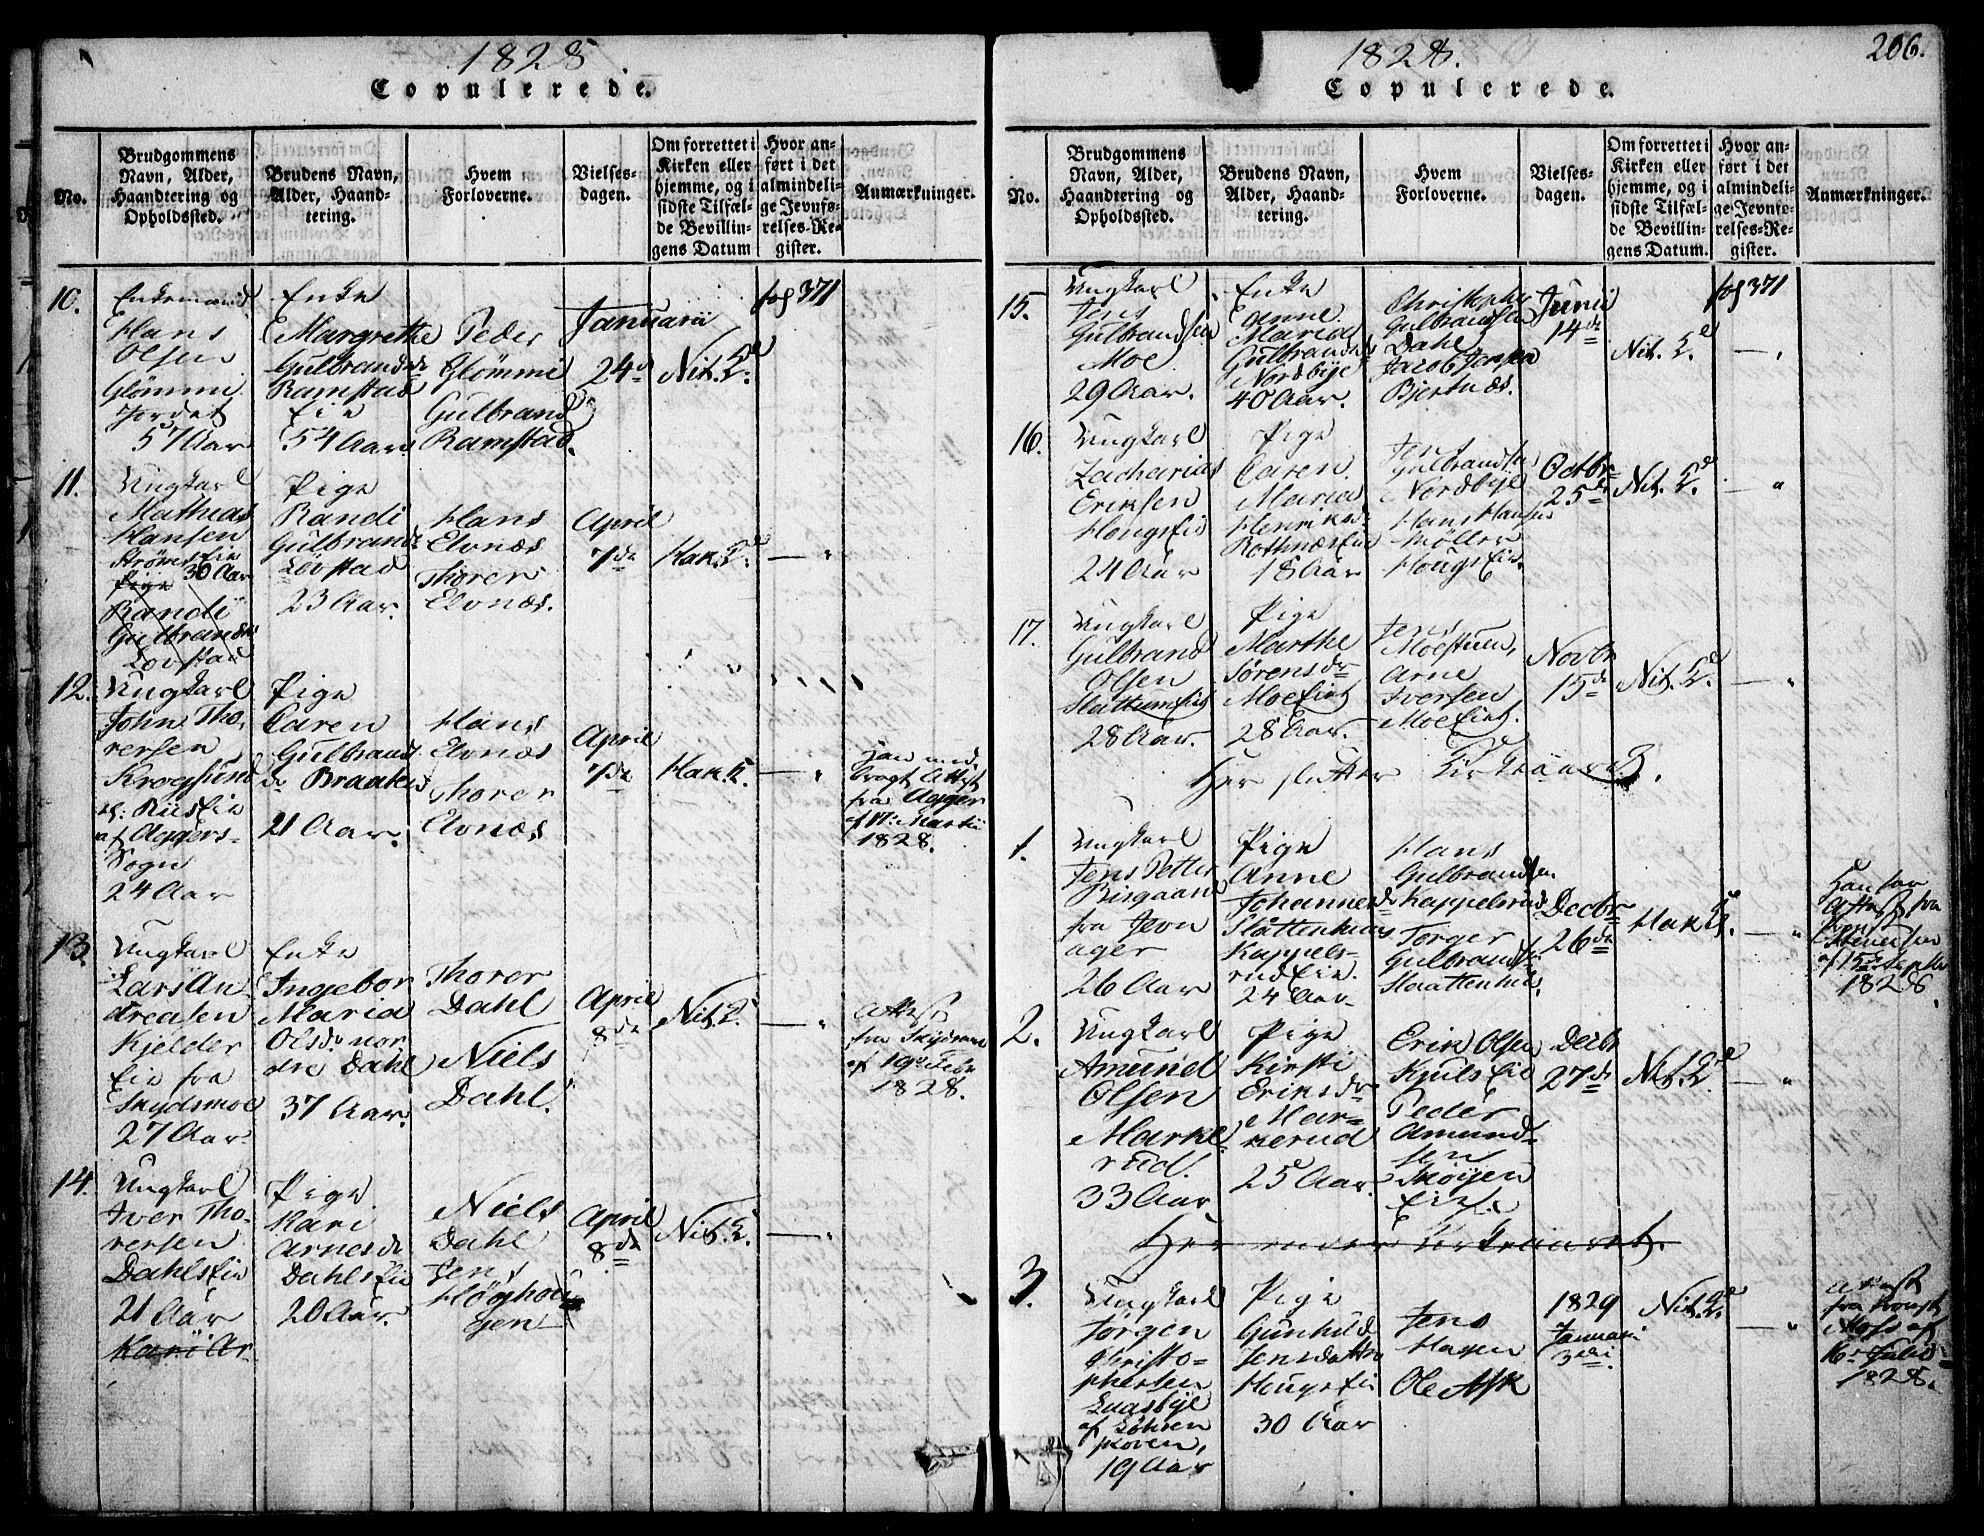 1828
Copulerede.
No.
Brudgommens
Navn, Alder,
Haandtering og
Opholdssted.
Brudens Navn,
Alder, Haand-
tering.
Hvem
Forloverne.
Vielses-
dagen.
Om forrettet i
Kirken eller
hjemme, og i
sidste Tilfæl-
de Bevillin-
gens Datum
Hvor an-
ført i det
almindeli-
ge Jevnfø-
relses-Re-
gister.
Anmærkninger.
10.
Enkemand
Hans
Olsen
Glömmi
Jordet
57 Aar
Enke
Margrethe
Gulbrandsdr
Ramstad
Eie
54 Aar
Peder
Glömmi
Gulbrand
Ramstad.
Januarii
24de
Nit. K.
fog 371
11.
Ungkarl
Mathias
Hansen
Ströms Eie
30 Aar
Pige
Randi
Gulbrandsdr
Lövstad
Pige
Randi
Gulbrandsdr
Lövstad
23 Aar.
Hans
Elvnæs
Thorer
Elvnæs.
April
7de
Hak. K.
—"
12.
Ungkarl
John Tho-
rersen
Krogsund
Riis Eie
af Aggers-
Sogn
24 Aar
Pige
Caren
Gulbrands
dr Braaten
21 Aar.
Hans
Elvnæs
Thorer
Elvnæs
April
7de
Hak. K.
—"
Han med
bragt Attest
fra Agger
af 17. Martii
1828.
13.
Ungkarl
Lars An-
dreasen
Kjelder
Eie fra
Skydsmoe
27 Aar
Enke
Ingebor
Maria
Olsdr nor
dre Dahl
37 Aar.
Thorer
Dahl
Niels
Dahl.
April
8de
Nit. K.
—"
Attest
fra Skydsmoe
af 19de Febr
1828.
14.
Ungkarl
Iver Tho-
rersen
Dahls Eie
21 Aar
Kari Ar
Pige
Kari
Arnesdr
Dahls Eie
20 Aar.
Niels
Dahl
Jens
Höghou
gen
April
8de
Nit. K.
—"
1828.
206.
Copulerede.
No.
Brudgommens
Navn, Alder,
Haandtering og
Opholdssted.
Brudens Navn,
Alder, Haand-
tering.
Hvem
Forloverne.
Vielses-
dagen.
Om forrettet i
Kirken eller
hjemme, og i
sidste Tilfæl-
de Bevillin-
gens Datum.
Hvor an-
ført i det
almindeli-
ge Jevnfø-
relses-Re-
gister.
Anmærkninger.
15.
Ungkarl
Jens
Gulbrandsen
Moe
29 Aar.
Enke
Anne
Maria
Gulbrandsdr
Nordbye
40 Aar.
Christopher
Gulbrandsen
Dahl
Jacob Jensen
Bjertnæs.
Junii
14de
Nit. K.
fog 371
—"
16.
Ungkarl
Zacharias
Eriksen
Hougs Eie
24 Aar
Pige
Caren
Maria
Henriksdr
Rothnæs Eie
18 Aar
Jens
Gulbrandsen
Nordbye
Hans Hansen
Möller
Hougs Eie.
Octbr
25de
Nit. K.
—"
17.
Ungkarl
Gulbrand
Olsen
Slattum Eie
28 Aar.
Pige
Marthe
Sörensdr
Moe Eiet
28 Aar.
Jens
Moestuen,
Arne
Iversen
Moe Eiet.
Novbr
15de
Nit. K.
—"
Her slutter Kirkeaaret.
1.
Ungkarl
Jens Petter
Bisgaard
fra Jevn
ager
26 Aar
Pige
Anne
Johannesdr
Slattenhuus
Kappels-
rud Eie.
24 Aar
Hans
Gulbrandsen
Kappelsrud
Torger
Gulbrandsen
Slaattenhuus.
Decbr
26de
Hak K.
—"
Han har
Attest fra
af 15de Septbr
1828.
2.
Ungkarl
Amund
Olsen
Marke
rud.
33 Aar
Pige
Kirsti
Eriksdr
Mar-
kerud
25 Aar.
Erik Olsen
Kjuls Eie
Peder
Amund-
sen
Skøyen
Eie.
Decbr
27de
Nit. K.
—"
Her ender Kirkeaaret.
3.
Ungkarl
Jörgen
Christo-
phersen
af
skoven,
19 Aar
Pige
Gunhild
Jensdatter
Hougs Eie
30 Aar
Jens
Hagen
Ole Ask
1829
Januarii
3die
Nit. K.
—"
Attest
fra
Moss af
16de Julii
1828.